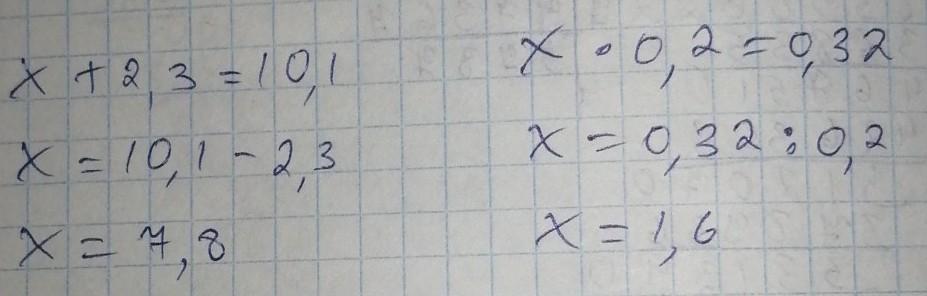 x + 2,3 = 10,1
x = 10,1 - 2,3
x = 7,8
x • 0,2 = 0,32
x = 0,32 : 0,2
x = 1,6